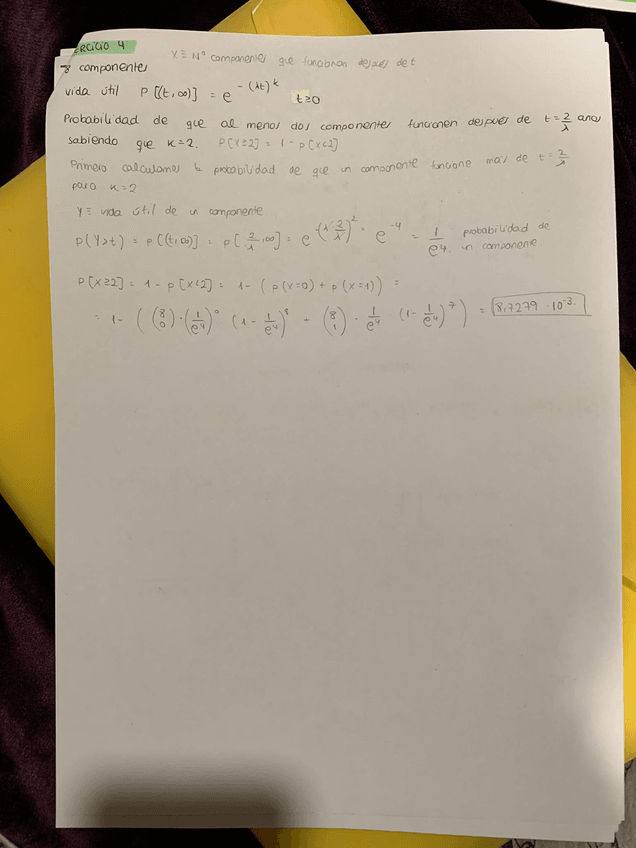 ERCICIO 4
X ≡ Nº componentes que funcionan después de t
8 componentes
vida útil P[(t,∞)] = e^-(λt)^k t≥0
Probabilidad de que al menos dos componentes funcionen después de t = 2/λ años
sabiendo que k=2. P[X≥2] = 1 - P[X<2]
Primero calculamos la probabilidad de que un componente funcione más de t = 2/λ
para k=2
Y ≡ vida útil de un componente
P(Y>t) = P[(t,∞)] = P[2/λ,∞] = e^-(λ·2/λ)^2 = e^-4 = 1/e^4. probabilidad de
un componente
P[X≥2] = 1 - P[X<2] = 1 - (P(X=0) + P(X=1)) =
= 1 - ((8 0)·(1/e^4)^0 (1 - 1/e^4)^8 + (8 1)·1/e^4 (1 - 1/e^4)^7) = 8,7279·10^-3.